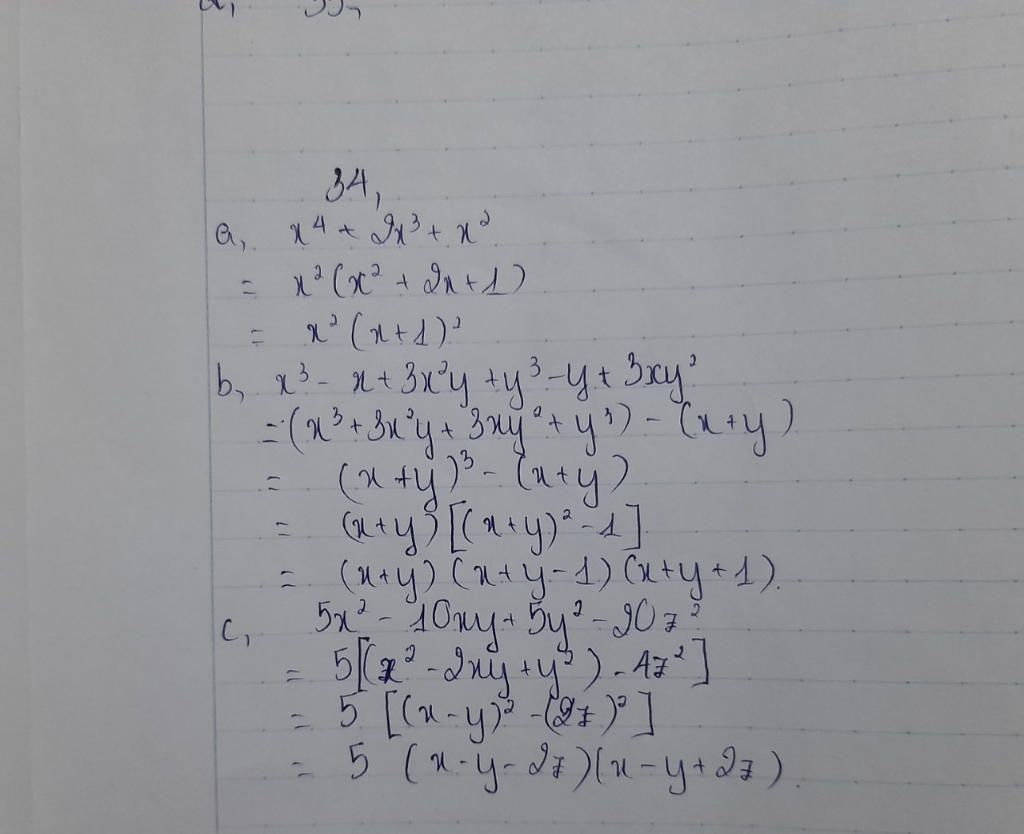 34,
a, x⁴ + 2x³ + x²
= x² (x² + 2x + 1)
= x² (x + 1)²
b, x³ - x + 3x²y + y³ - y + 3xy²
= (x³ + 3x²y + 3xy² + y³) - (x + y)
= (x + y)³ - (x + y)
= (x + y) [(x + y)² - 1]
= (x + y) (x + y - 1) (x + y + 1).
c, 5x² - 10xy + 5y² - 20z²
= 5[(x² - 2xy + y²) - 4z²]
= 5 [(x - y)² - (2z)²]
= 5 (x - y - 2z)(x - y + 2z).